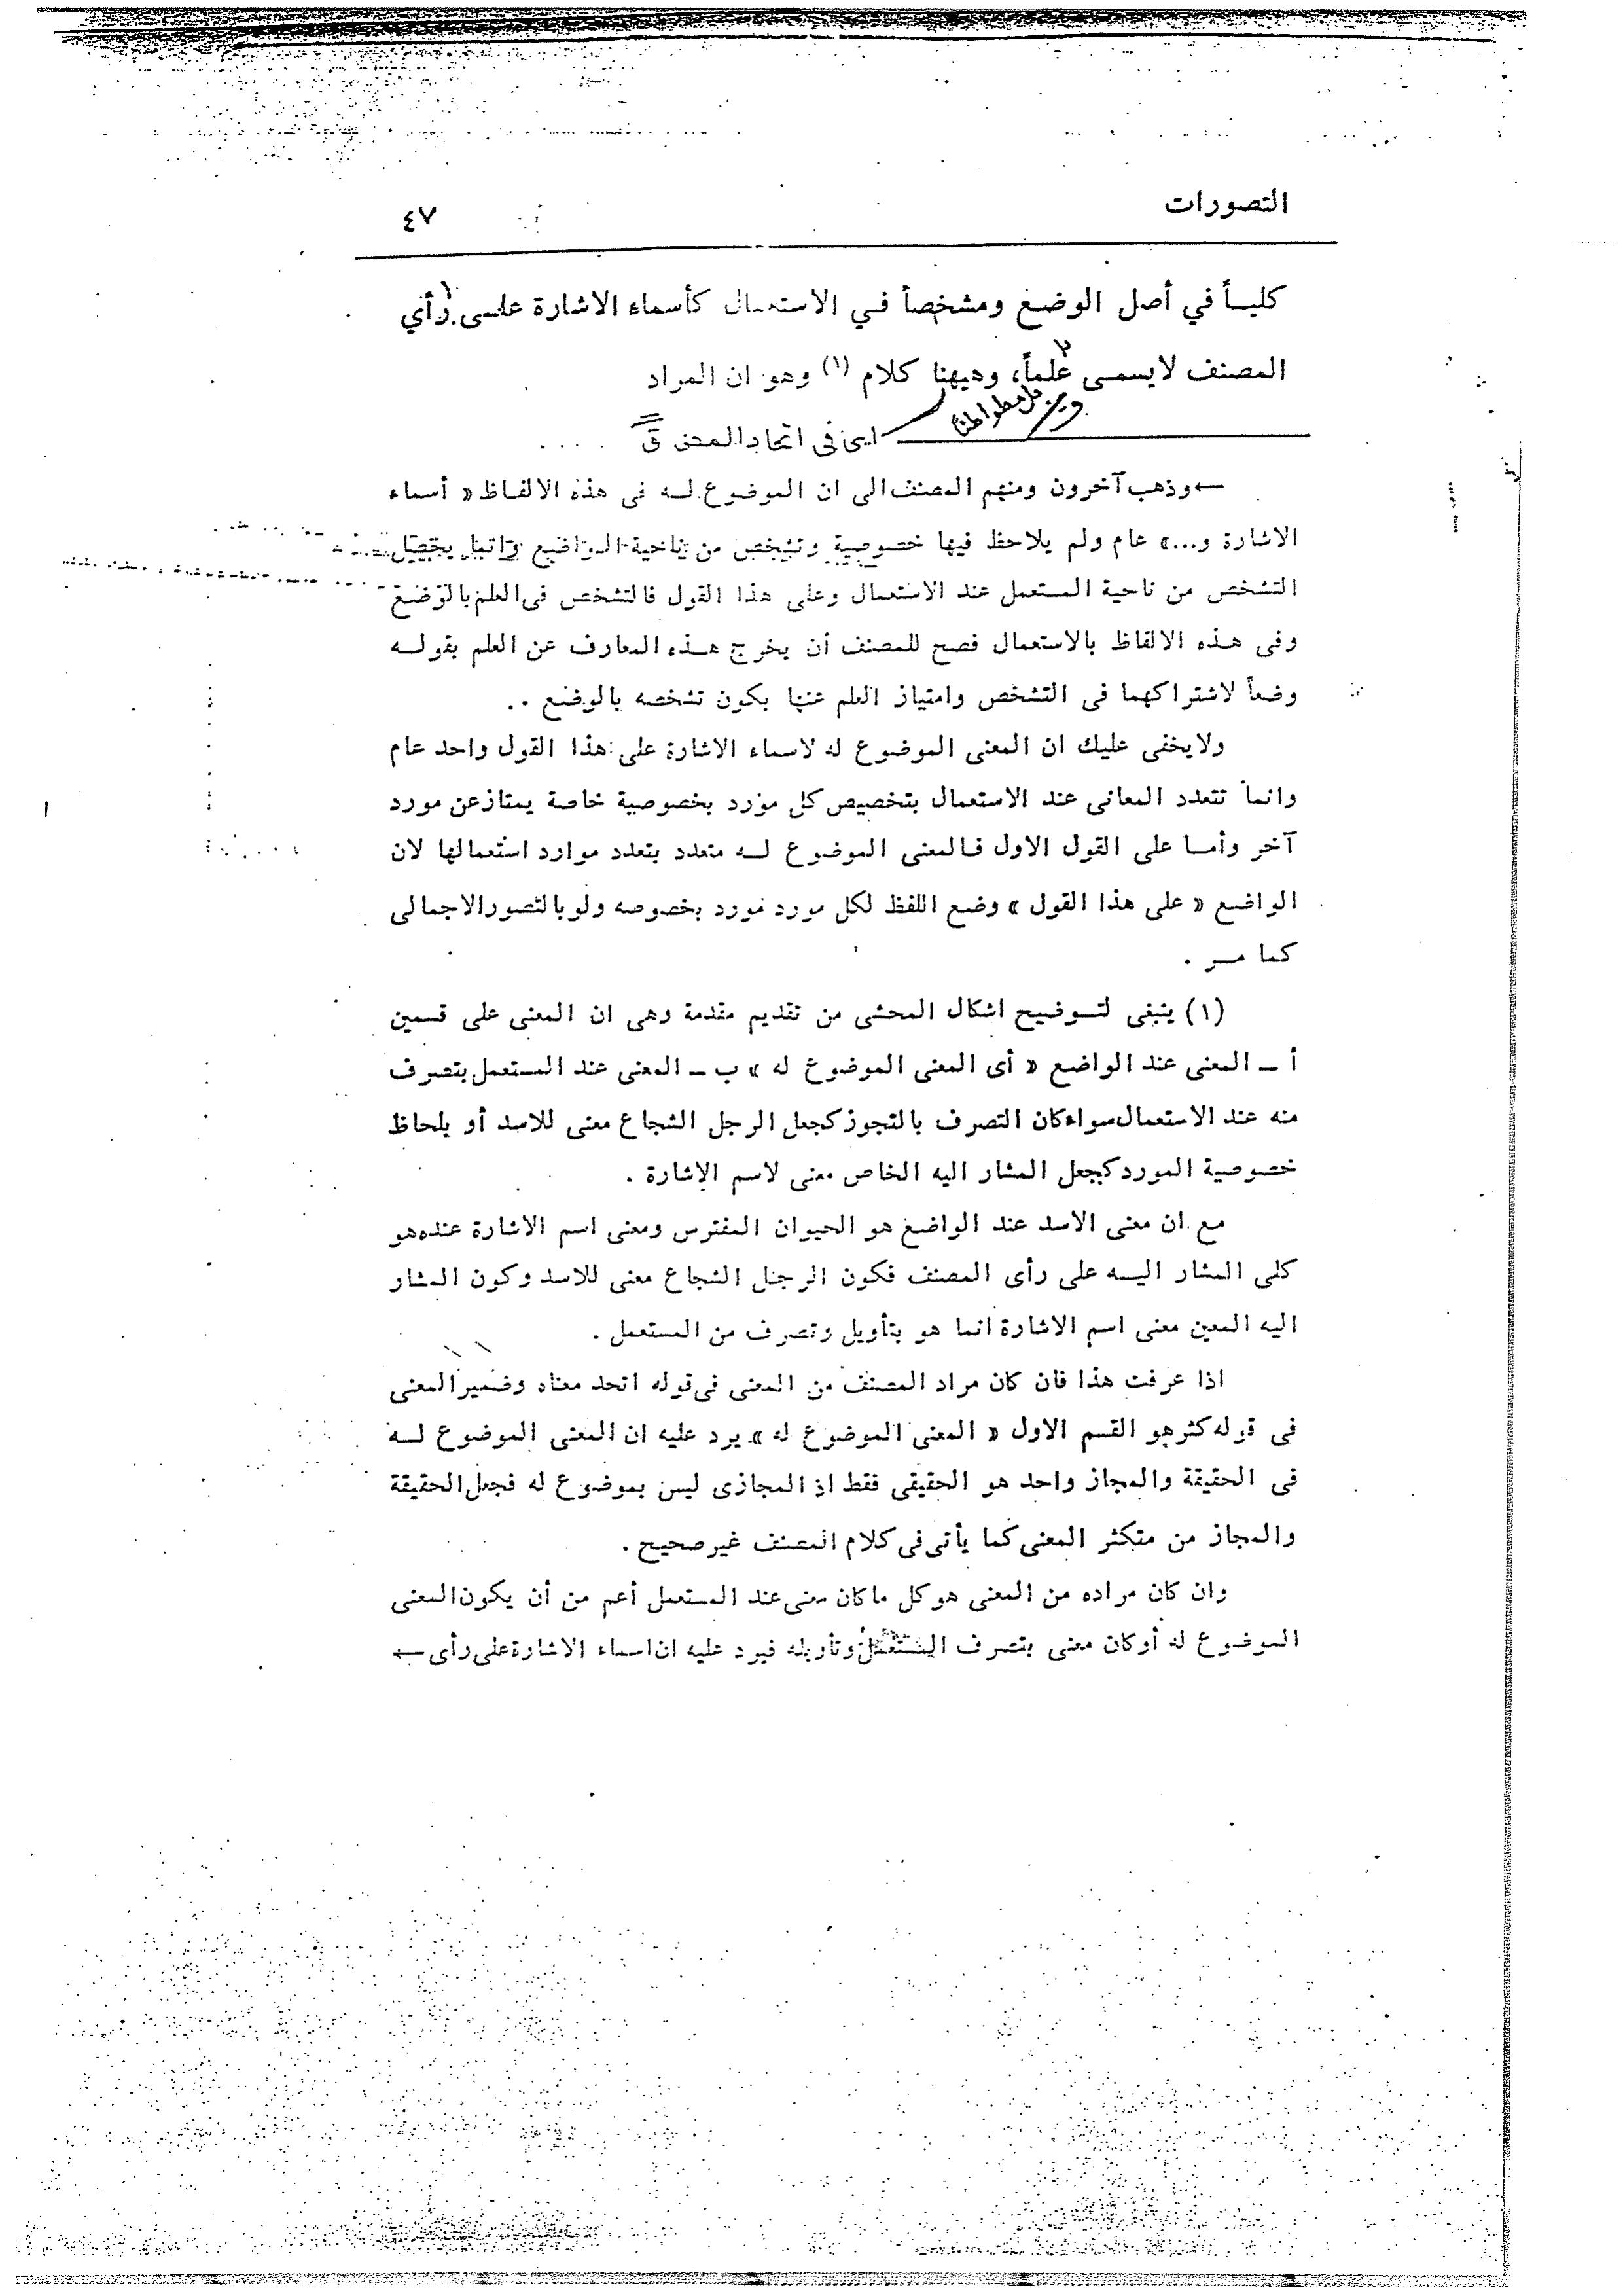 التصورات ٤٧
كليــأ في أصل الوضع ومشخصاً في الاستعمال كأسماء الاشارة علــى رأي
المصنف لايسمى علماً، وهيهنا كلام (١) وهو ان المراد
بل متواطئاً
اى فى اتحاد المعنى ق
← وذهب آخرون ومنهم المصنف الى ان الموضوع لــه فى هذه الالفاظ « أسماء
الاشارة و...» عام ولم يلاحظ فيها خصوصية وتشخص من ناحية الواضع وانما يحصل
التشخص من ناحية المستعمل عند الاستعمال وعلى هذا القول فالتشخص فى العلم بالوضع
وفى هذه الالفاظ بالاستعمال فصح للمصنف أن يخرج هــذه المعارف عن العلم بقولــه
وضعاً لاشتراكهما فى التشخص وامتياز العلم عنها بكون تشخصه بالوضع ..
ولايخفى عليك ان المعنى الموضوع له لاسماء الاشارة على هذا القول واحد عام
وانما تتعدد المعانى عند الاستعمال بتخصيص كل مورد بخصوصية خاصة يمتاز عن مورد
آخر وأمــا على القول الاول فــالمعنى الموضوع لــه متعدد بتعدد موارد استعمالها لان
الواضع « على هذا القول » وضع اللفظ لكل مورد مورد بخصوصه ولو بالتصور الاجمالى
كما مــر .
(١) ينبغى لتــوضيح اشكال المحشى من تقديم مقدمة وهى ان المعنى على قسمين
أ ــ المعنى عند الواضع « أى المعنى الموضوع له » ب ــ المعنى عند المستعمل بتصرف
منه عند الاستعمال سواء كان التصرف بالتجوز كجعل الرجل الشجاع معنى للاسد أو بلحاظ
خصوصية المورد كجعل المشار اليه الخاص معنى لاسم الإشارة .
مع ان معنى الاسد عند الواضع هو الحيوان المفترس ومعنى اسم الاشارة عنده هو
كلى المشار اليــه على رأى المصنف فكون الرجل الشجاع معنى للاسد وكون المشار
اليه المعين معنى اسم الاشارة انما هو بتأويل وتصرف من المستعمل .
اذا عرفت هذا فان كان مراد المصنف من المعنى فى قوله اتحد معناه وضمير المعنى
فى قوله كثر هو القسم الاول « المعنى الموضوع له » يرد عليه ان المعنى الموضوع لــه
فى الحقيقة والمجاز واحد هو الحقيقى فقط اذ المجازى ليس بموضوع له فجعل الحقيقة
والمجاز من متكثر المعنى كما يأتى فى كلام المصنف غير صحيح .
وان كان مراده من المعنى هو كل ما كان معنى عند المستعمل أعم من أن يكون المعنى
الموضوع له أو كان معنى بتصرف المستعمل وتأويله فيرد عليه ان اسماء الاشارة على رأى ←